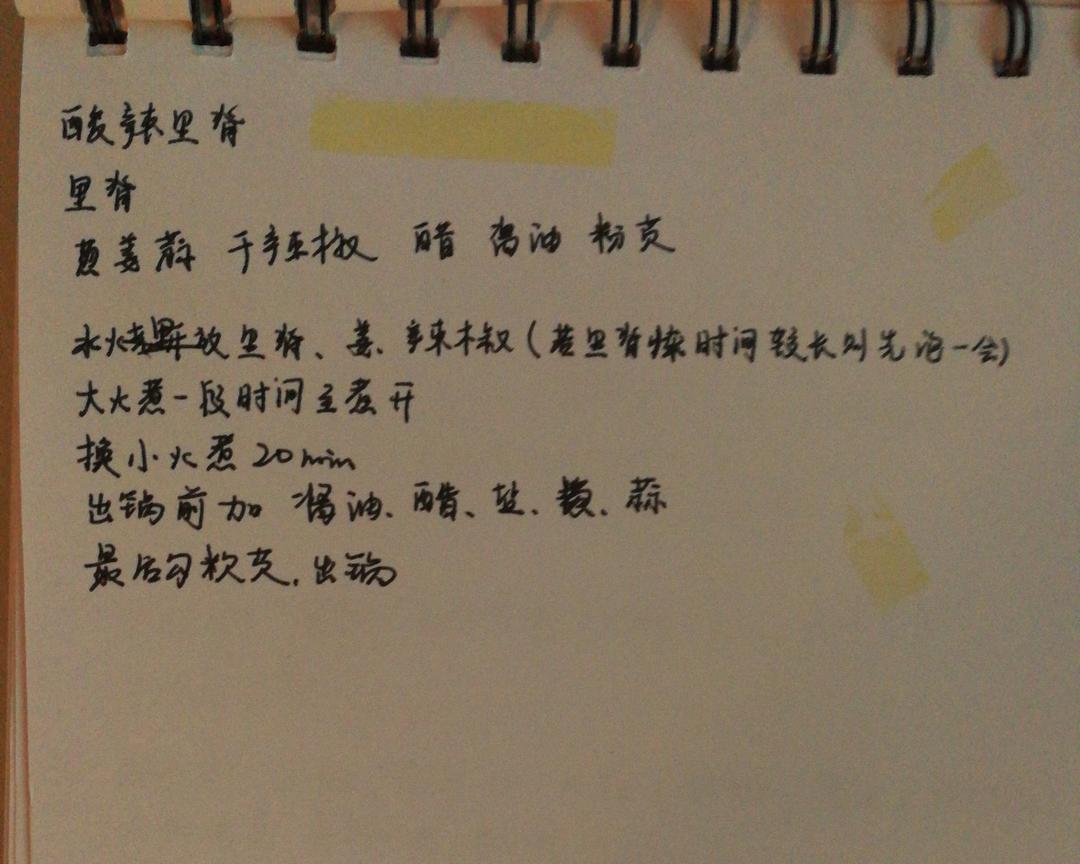 酸辣里脊
里脊
葱姜蒜 干辣椒 醋 酱油 粉芡
水放里脊、姜、辣椒(若里脊 时间较长则先泡一会)
大火煮一段时间至煮开
换小火煮20min
出锅前加 酱油、醋、盐、葱、蒜
最后勾软芡,出锅